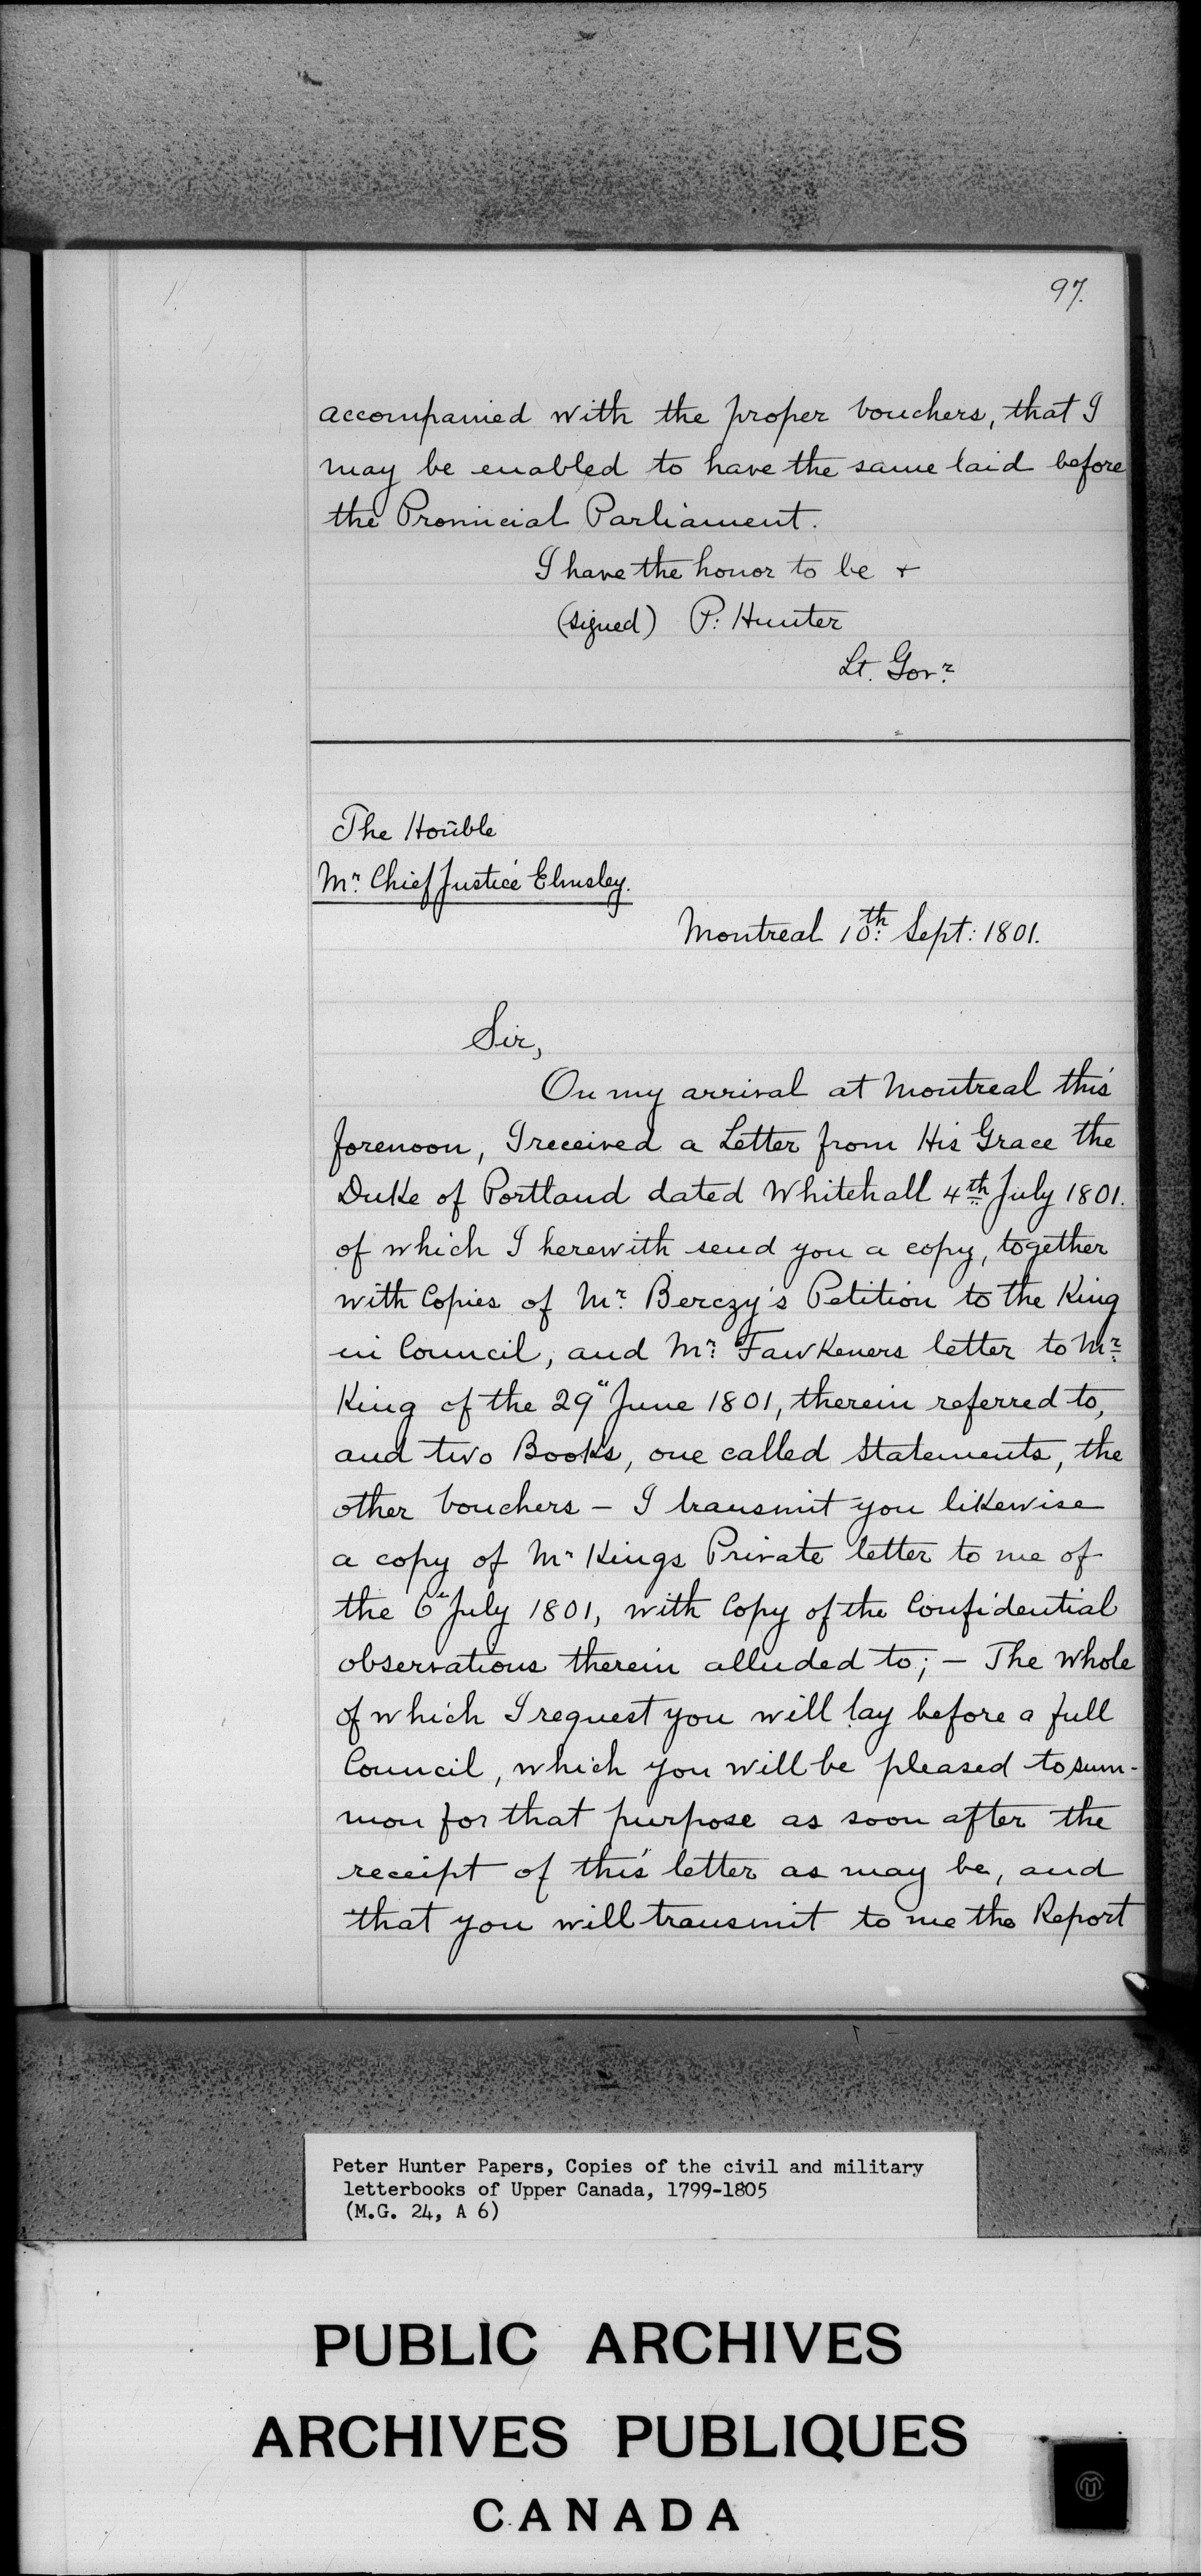 97.
accompanied with the proper vouchers, that I
may be enabled to have the same laid before
the Provincial Parliament.
I have the honor to be +
(signed) P: Hunter
Lt. Govr.
The Honble
Mr. Chief Justice Elmsley.
Montreal 10th: Sept: 1801.
Sir,
On my arrival at Montreal this
forenoon, I received a Letter from His Grace the
Duke of Portland dated Whitehall 4th July 1801.
of which I herewith send you a copy, together
with Copies of Mr. Berczy's Petition to the King
in Council, and Mr. Fawkeners letter to Mr.
King of the 29" June 1801, therein referred to,
and two Books, one called Statements, the
other Vouchers – I transmit you likewise
a copy of Mr Kings Private letter to me of
the 6" July 1801, with Copy of the Confidential
observations therein alluded to; – The whole
of which I request you will lay before a full
Council, which you will be pleased to sum-
mon for that purpose as soon after the
receipt of this letter as may be, and
that you will transmit to me the Report
Peter Hunter Papers, Copies of the civil and military
letterbooks of Upper Canada, 1799-1805
(M.G. 24, A 6)
PUBLIC ARCHIVES
ARCHIVES PUBLIQUES
CANADA